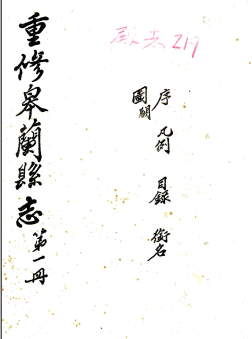 重修皋蘭縣志 第一冊
序 凡例 目錄 銜名
圖關